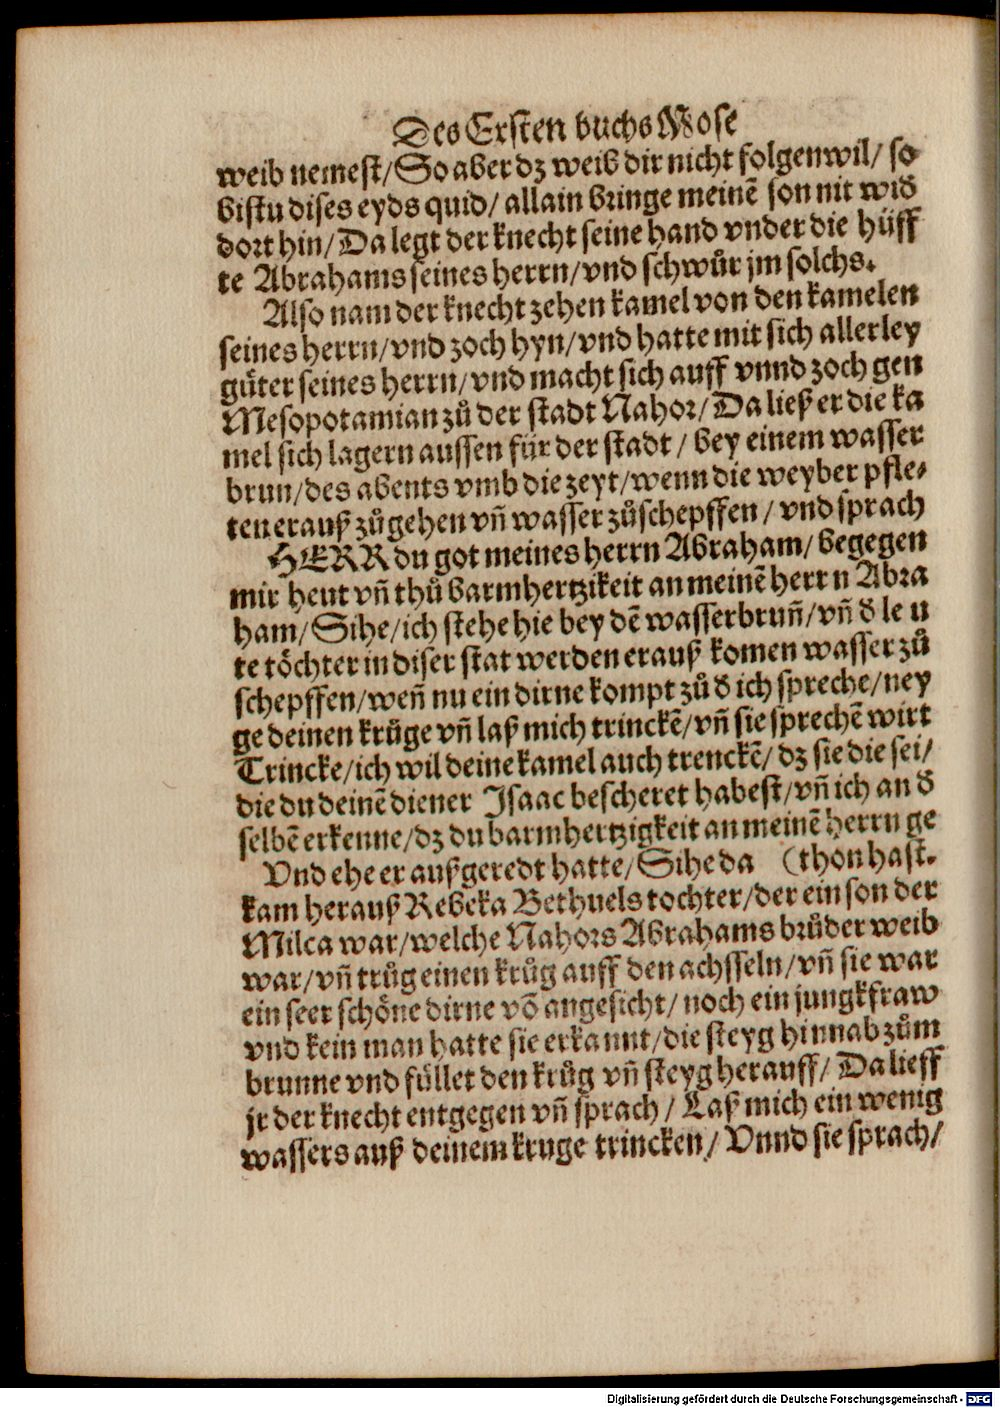 Des Ersten buchs Mose
weib nemest/ So aber dz weib dir nicht folgen wil/ so
bistu dises eyds quid/ allain bringe meinē son nit wid̕
dort hin/ Da legt der knecht seine hand vnder die hüff
te Abrahams seines herrn/ vnd schwůr jm solchs.
Also nam der knecht zehen kamel von den kamelen
seines herrn/ vnd zoch hyn/ vnd hatte mit sich allerley
gůter seines herrn/ vnd macht sich auff vnnd zoch gen
Mesopotamian zů der stadt Nahor/ Da ließ er die ka
mel sich lagern aussen für der stadt / bey einem wasser
brun/ des abents vmb die zeyt/ wenn die weyber pfle-
ten erauß zůgehen vñ wasser zůschepffen / vnd sprach
HERR du got meines herrn Abraham/ begegen
mir heut vñ thů barmhertzikeit an meinē herrn Abra
ham/ Sihe/ ich stehe hie bey dē wasserbruñ/ vñ d̕ leu
te töchter in diser stat werden erauß komen wasser zů
schepffen/ weñ nu ein dirne kompt zů d̕ ich spreche/ ney
ge deinen krůge vñ laß mich trinckē/ vñ sie sprechē wirt
Trincke/ ich wil deine kamel auch trenckē/ dz sie die sei/
die du deinē diener Isaac bescheret habest/ vñ ich an d̕
selbē erkenne/ dz du barmhertzigkeit an meinē herrn ge
Vnd ehe er außgeredt hatte/ Sihe da (thon hast.
kam herauß Rebeka Bethuels tochter/ der ein son der
Milca war/ welche Nahors Abrahams brůder weib
war/ vñ trůg einen krůg auff den achsseln/ vñ sie war
ein seer schöne dirne vō angesicht/ noch ein jungkfraw
vnd kein man hatte sie erkannt/ die steyg hinnab zům
brunne vnd füllet den krůg vñ steyg herauff/ Da lieff
jr der knecht entgegen vñ sprach / Laß mich ein wenig
wassers auß deinem kruge trincken/ Vnnd sie sprach/
Digitalisierung gefördert durch die Deutsche Forschungsgemeinschaft - DFG